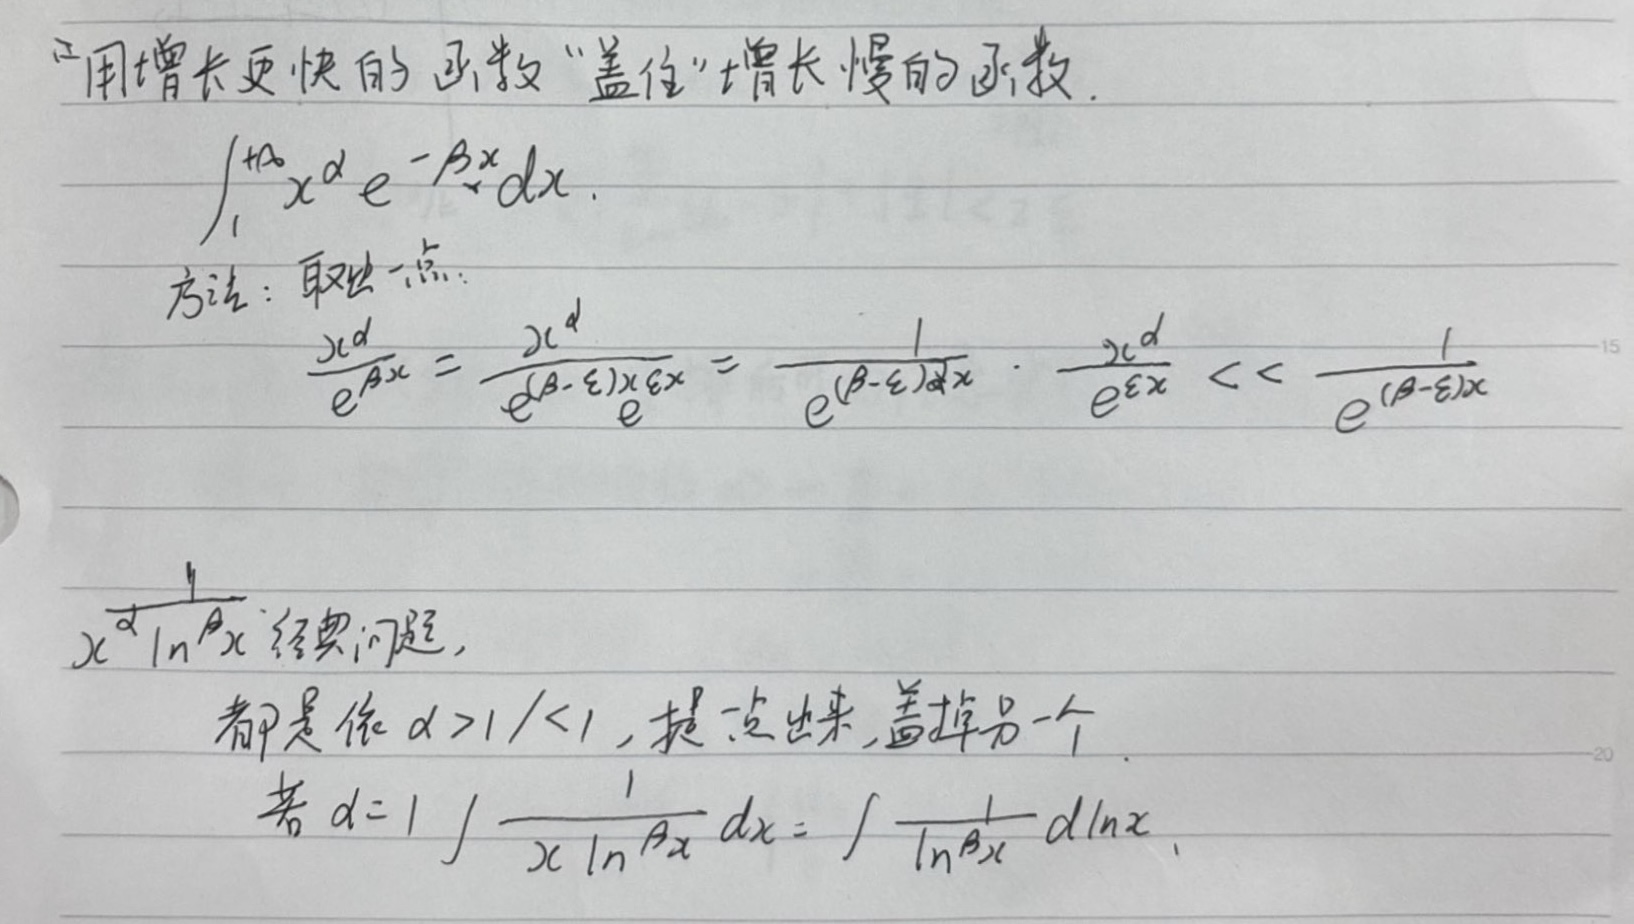 用增长更快的函数“盖住”增长慢的函数.
∫₁^{+∞} x^α e^{-βx} dx.
方法: 取出一点:
x^α / e^{βx} = x^α / (e^{(β-ε)x} e^{εx}) = 1 / e^{(β-ε)x} · x^α / e^{εx} << 1 / e^{(β-ε)x}
1 / (x^α ln^β x) 经典问题,
都是依 α>1/<1, 提一点出来, 盖掉另一个.
若 α=1 ∫ 1 / (x ln^β x) dx = ∫ 1 / (ln^β x) d lnx,
15
20